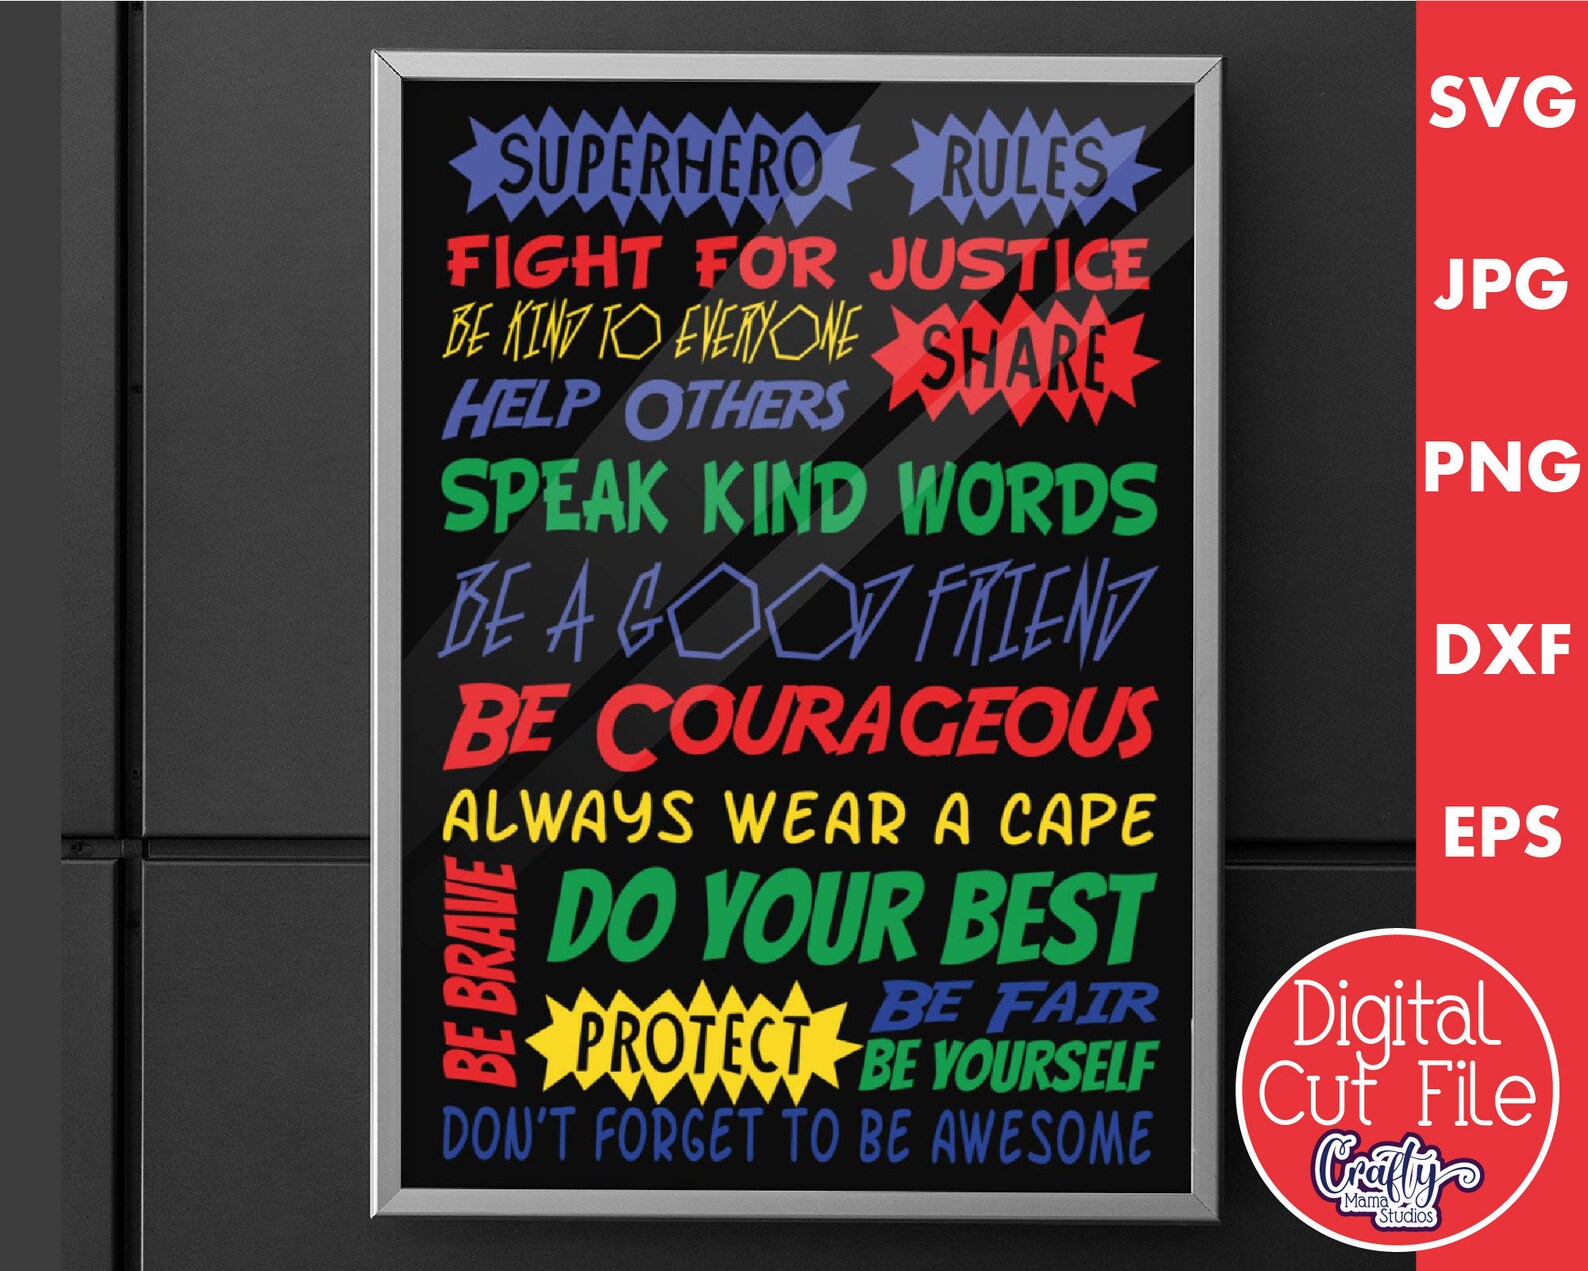 SUPERHERO RULES
FIGHT FOR JUSTICE
BE KIND TO EVERYONE
SHARE
HELP OTHERS
SPEAK KIND WORDS
BE A GOOD FRIEND
BE COURAGEOUS
ALWAYS WEAR A CAPE
BE BRAVE
DO YOUR BEST
PROTECT
BE FAIR
BE YOURSELF
DON'T FORGET TO BE AWESOME
SVG
JPG
PNG
DXF
EPS
Digital
Cut File
Crafty
Mama
Studios